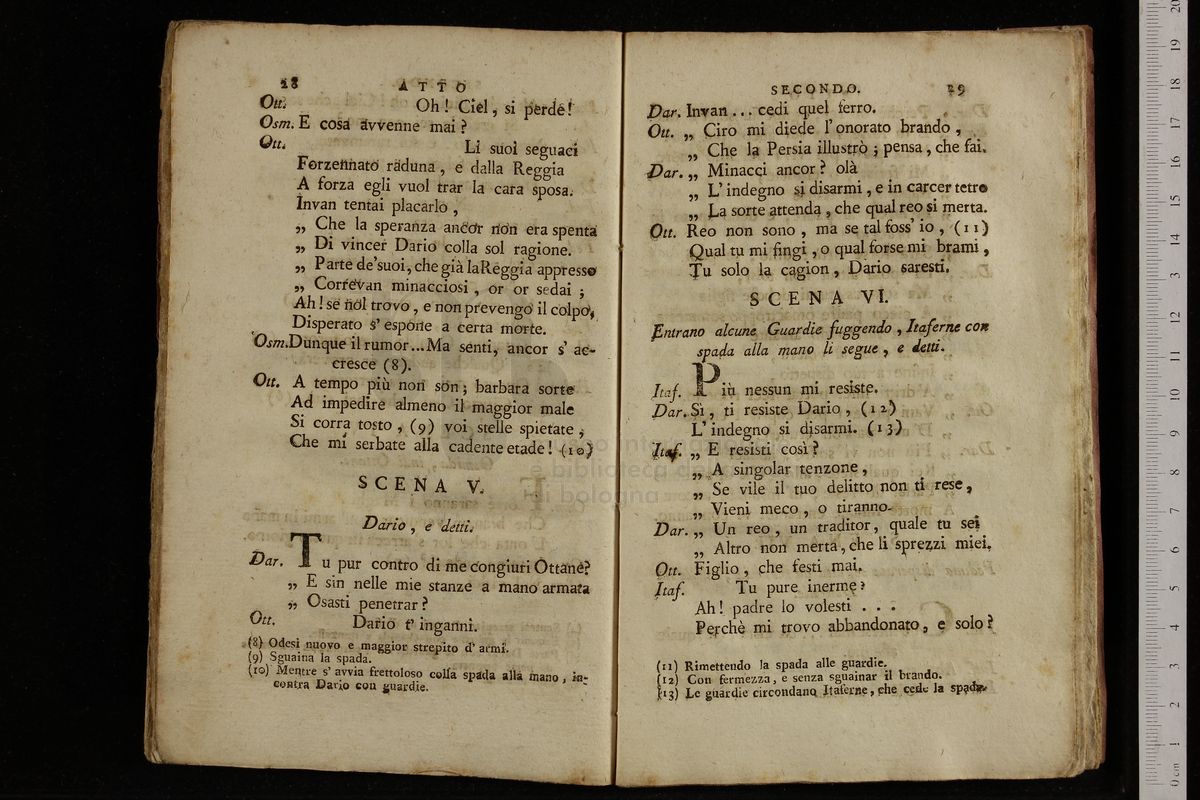 28 ATTO
Ott. Oh! Ciel, si perde!
Osm. E cosa avvenne mai?
Ott. Li suoi seguaci
Forzennato raduna, e dalla Reggia
A forza egli vuol trar la cara sposa.
Invan tentai placarlo,
„ Che la speranza ancor non era spenta
„ Di vincer Dario colla sol ragione.
„ Parte de'suoi, che già laReggia appresso
„ Correvan minacciosi, or or sedai;
Ah! se nol trovo, e non prevengo il colpo,
Disperato s' espone a certa morte.
Osm.Dunque il rumor...Ma senti, ancor s' ac-
cresce (8).
Ott. A tempo più non son; barbara sorte
Ad impedire almeno il maggior male
Si corra tosto, (9) voi stelle spietate,
Che mi serbate alla cadente etade! (10)
SCENA V.
Dario, e detti.
Dar. Tu pur contro di me congiuri Ottane?
„ E sin nelle mie stanze a mano armata
„ Osasti penetrar?
Ott. Dario t' inganni.
(8) Odesi nuovo e maggior strepito d' armi.
(9) Sguaina la spada.
(10) Mentre s' avvia frettoloso colla spada alla mano, in-
contra Dario con guardie.
SECONDO. 29
Dar. Invan... cedi quel ferro.
Ott. „ Ciro mi diede l'onorato brando,
„ Che la Persia illustrò; pensa, che fai.
Dar. „ Minacci ancor? olà
„ L' indegno si disarmi, e in carcer tetro
„ La sorte attenda, che qual reo si merta.
Ott. Reo non sono, ma se tal foss' io, (11)
Qual tu mi fingi, o qual forse mi brami,
Tu solo la cagion, Dario saresti.
SCENA VI.
Entrano alcune Guardie fuggendo, Itaferne con
spada alla mano li segue, e detti.
Itaf. Più nessun mi resiste.
Dar. Sì, ti resiste Dario, (12)
L' indegno si disarmi. (13)
Itaf. „ E resisti così?
„ A singolar tenzone,
„ Se vile il tuo delitto non ti rese,
„ Vieni meco, o tiranno.
Dar. „ Un reo, un traditor, quale tu sei
„ Altro non merta, che li sprezzi miei.
Ott. Figlio, che festi mai.
Itaf. Tu pure inerme?
Ah! padre lo volesti...
Perchè mi trovo abbandonato, e solo?
(11) Rimettendo la spada alle guardie.
(12) Con fermezza, e senza sguainar il brando.
(13) Le guardie circondano Itaferne, che cede la spada.
museo internazionale
e biblioteca della musica
di bologna